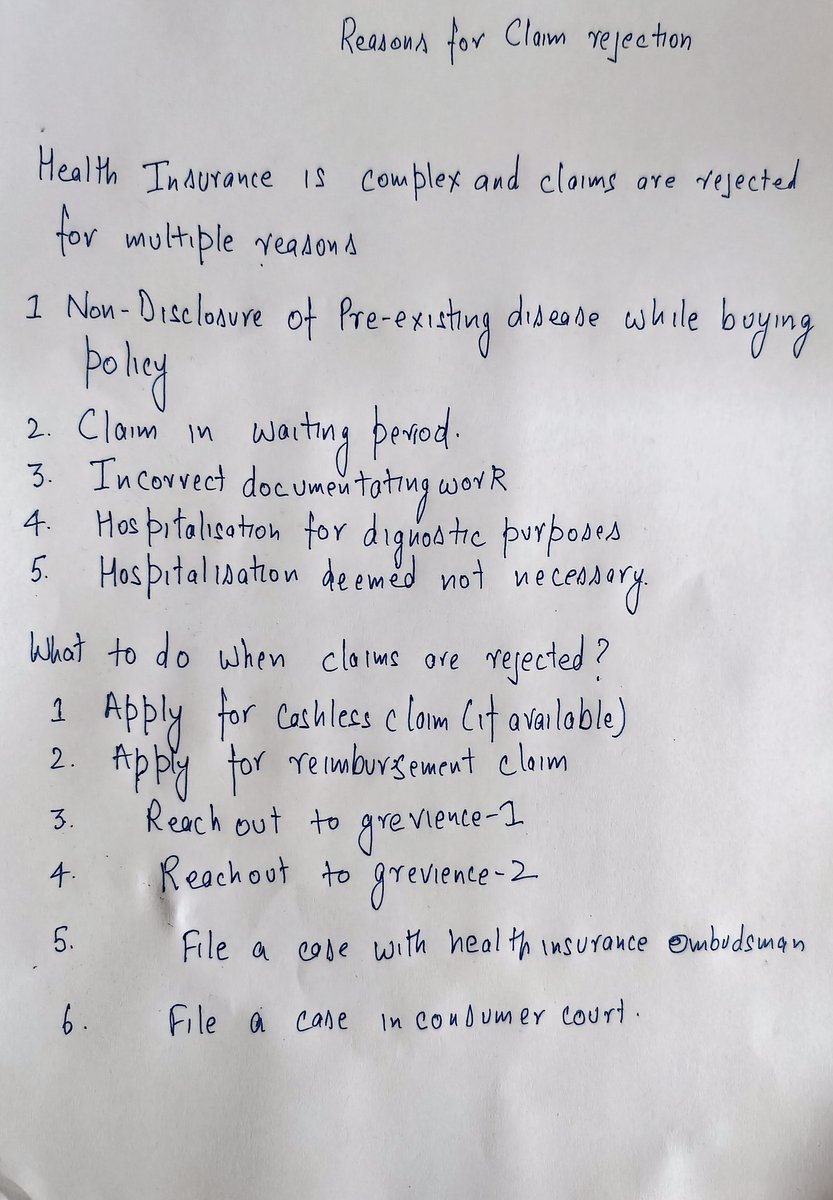 Reasons for Claim rejection
Health Insurance is complex and claims are rejected
for multiple reasons
1 Non-Disclosure of Pre-existing disease while buying
policy
2. Claim in waiting period.
3. Incorrect documentating work
4. Hospitalisation for dignostic purposes
5. Hospitalisation deemed not necessary.
What to do when claims are rejected?
1 Apply for Cashless claim (if available)
2. Apply for reimbursement claim
3. Reach out to grevience-1
4. Reachout to grevience-2
5. File a case with health insurance ombudsman
6. File a case in consumer court.